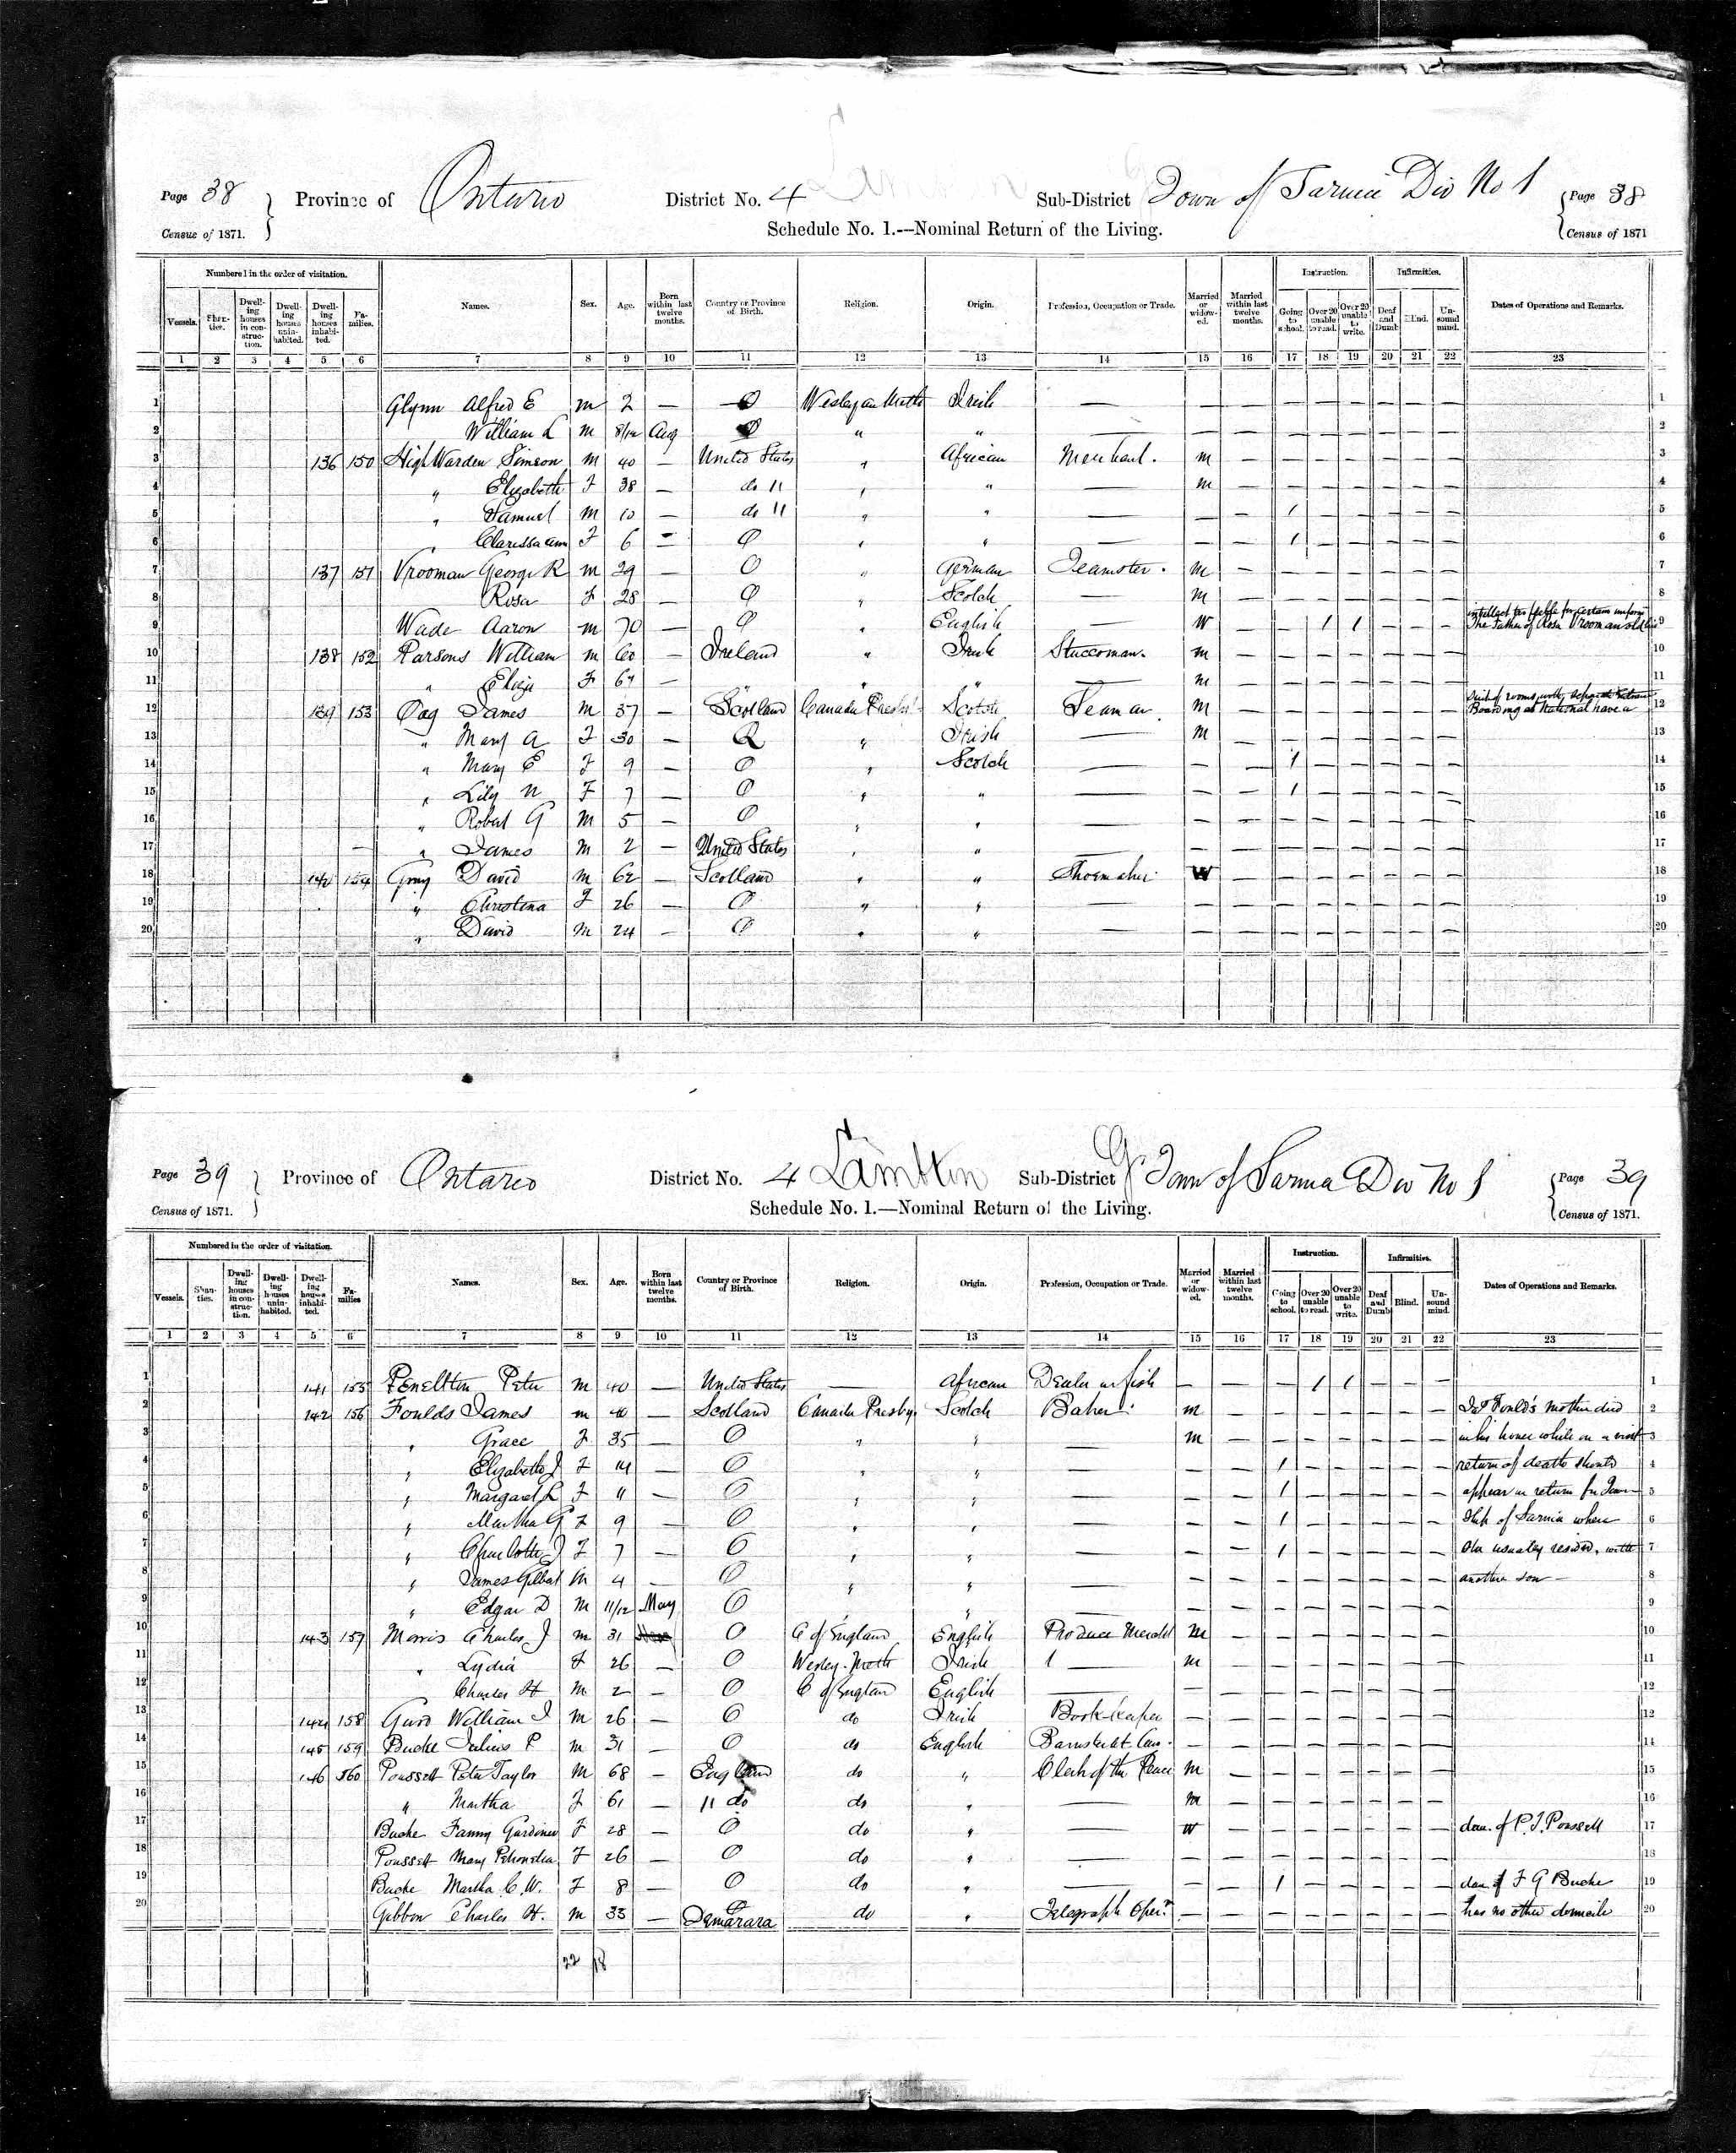 Page 38 Province of Ontario District No. 4 Sub-District Town of Sarnia Div No 1 Page 38
Census of 1871. Schedule No. 1.--Nominal Return of the Living. Census of 1871
Numbered in the order of visitation. Instruction. Infirmities.
Vessels. Shanties. Dwelling houses in construction. Dwelling houses uninhabited. Dwelling houses inhabited. Families. Names. Sex. Age. Born within last twelve months. Country or Province of Birth. Religion. Origin. Profession, Occupation or Trade. Married or widowed. Married within last twelve months. Going to school. Over 20 unable to read. Over 20 unable to write. Deaf and Dumb. Blind. Unsound mind. Dates of Operations and Remarks.
1 2 3 4 5 6 7 8 9 10 11 12 13 14 15 16 17 18 19 20 21 22 23
1 Glynn Alfred E M 2 — O Wesleyan Meth Irish — — — — — — — — — 1
2 William L M 8/12 Aug O " " — — — — — — — — — 2
3 136 150 HighWarden Simson M 40 — United States " African Merchant. M — — — — — — — 3
4 " Elizabeth F 38 — do 11 " " — M — — — — — — — 4
5 " Samuel M 10 — do 11 " " — — — 1 — — — — — 5
6 " Clarissa Ann F 6 — O " " — — — 1 — — — — — 6
7 137 151 Vrooman George R M 29 — O " German Teamster. M — — — — — — — 7
8 Rosa F 28 — O " Scotch — M — — — — — — — 8
9 Wade Aaron M 70 — O " English — W — — 1 1 — — — The Father of Rosa Vrooman 9
10 138 152 Parsons William M 60 — Ireland " Irish Stuccoman. M — — — — — — — 10
11 " Eliza F 67 — " " " M — — — — — — — 11
12 139 153 Oag James M 37 — Scotland Canada Presby Scotch Seaman. M — — — — — — — Boarding at National have a 12
13 " Mary A F 30 — Q " Irish — M — — — — — — — 13
14 " Mary E F 9 — O " Scotch — — — 1 — — — — — 14
15 " Lily N F 7 — O " " — — — 1 — — — — — 15
16 " Robert G M 5 — O " " — — — — — — — — — 16
17 " James M 2 — United States " " — — — — — — — — 17
18 140 154 Gray David M 62 — Scotland " " Shoemaker W — — — — — — — 18
19 " Christina F 26 — O " " — — — — — — — — — 19
20 " David M 24 — O " " — — — — — — — — — 20
Page 39 Province of Ontario District No. 4 Lambton Sub-District G Town of Sarnia Div No 1 Page 39
Census of 1871. Schedule No. 1.—Nominal Return of the Living. Census of 1871.
Numbered in the order of visitation. Instruction. Infirmities.
Vessels. Shanties. Dwelling houses in construction. Dwelling houses uninhabited. Dwelling houses inhabited. Families Names. Sex. Age. Born within last twelve months. Country or Province of Birth. Religion. Origin. Profession, Occupation or Trade. Married or widowed. Married within last twelve months. Going to school. Over 20 unable to read. Over 20 unable to write. Deaf and Dumb Blind. Unsound mind. Dates of Operations and Remarks.
1 2 3 4 5 6 7 8 9 10 11 12 13 14 15 16 17 18 19 20 21 22 23
1 141 155 Peter M 40 — United States — African Dealer in fish — — — 1 1 — — — 1
2 142 156 Foulds James M 40 — Scotland Canada Presby. Scotch Baker M — — — — — — — Jas Fould's mother died 2
3 " Grace F 35 — O " " — M — — — — — — — in his house while on a visit 3
4 " Elizabeth J F 14 — O " " — — — 1 — — — — — return of death should 4
5 " Margaret L F 11 — O " " — — — 1 — — — — — appear in return for Town 5
6 " Martha G F 9 — O " " — — — 1 — — — — — Ship of Sarnia where 6
7 " Charlotte J F 7 — O " " — — — 1 — — — — — She usualey resided, with 7
8 " James Gilbert M 4 — O " " — — — — — — — — — another son — 8
9 " Edgar D M 11/12 May O " " — — — — — — — — — 9
10 143 157 Morris Charles J M 31 O C of England English Produce Merch M — — — — — — — 10
11 " Lydia F 26 — O Wesley. Meth Irish — M — — — — — — — 11
12 Charles H M 2 — O C of England English — — — — — — — — — 12
13 144 158 Gurd William J M 26 — O do Irish Book keeper — — — — — — — — 12
14 145 159 Bucke Julius P M 31 — O do English Barrister at Law. — — — — — — — — 14
15 146 160 Poussett Peter Taylor M 68 — England do " Clerk of the Peace M — — — — — — — 15
16 " Martha F 61 — 11 do do " — M — — — — — — — 16
17 Bucke Fanny Gardiner F 28 — O do " — W — — — — — — — dau. of P. T. Poussett 17
18 Poussett Mary F 26 — O do " — — — — — — — — — 18
19 Bucke Martha C. W. F 8 — O do " — — — 1 — — — — — dau of F G Bucke 19
20 Gibbon Charles H. M 33 — Damarara do " Telegraph Oper. — — — — — — — — has no other domicile 20
22 18